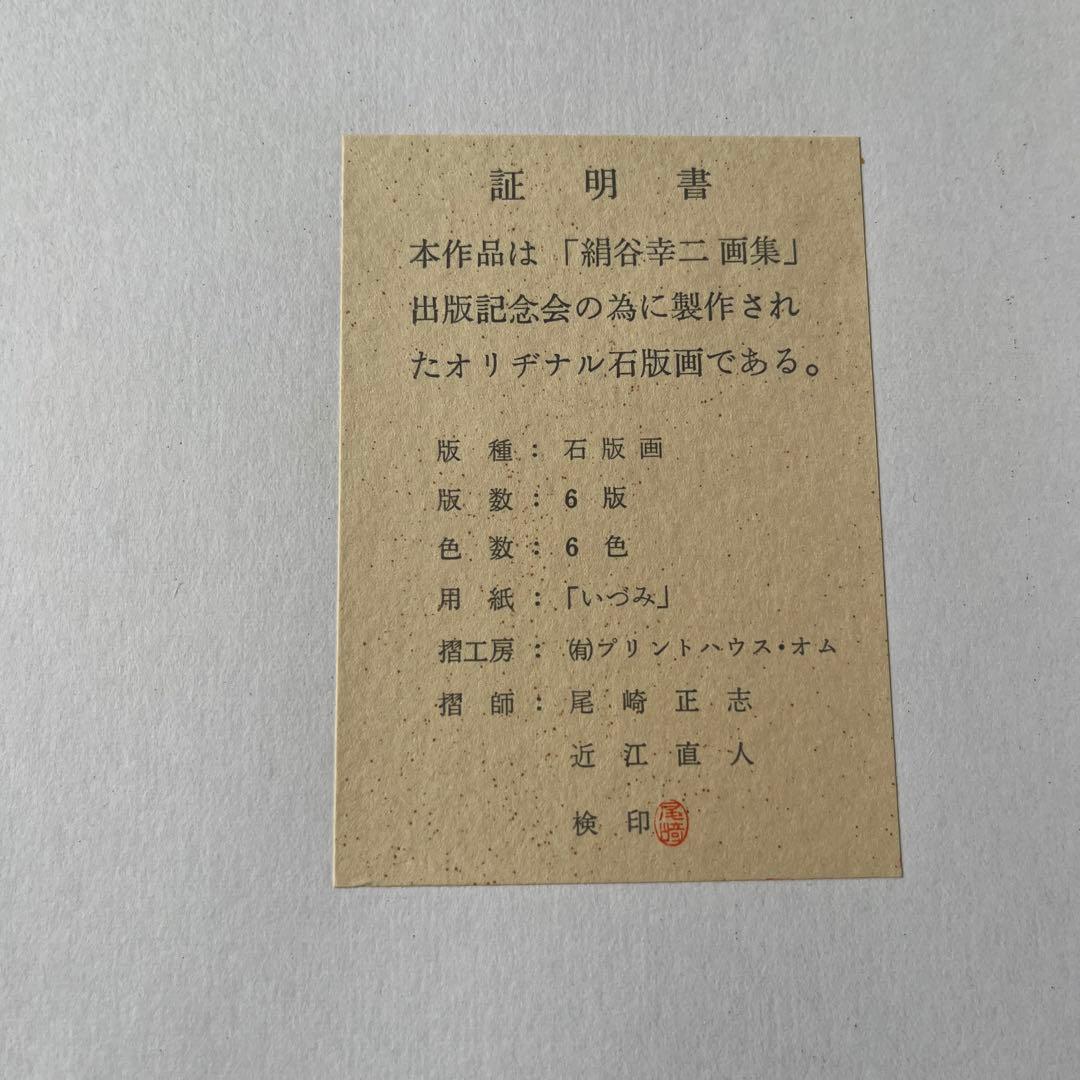 証明書
本作品は「絹谷幸二 画集」
出版記念会の為に製作され
たオリヂナル石版画である。
版種：石版画
版数：6版
色数：6色
用紙：「いづみ」
摺工房：㈲プリントハウス・オム
摺師：尾崎正志
近江直人
検印 尾崎